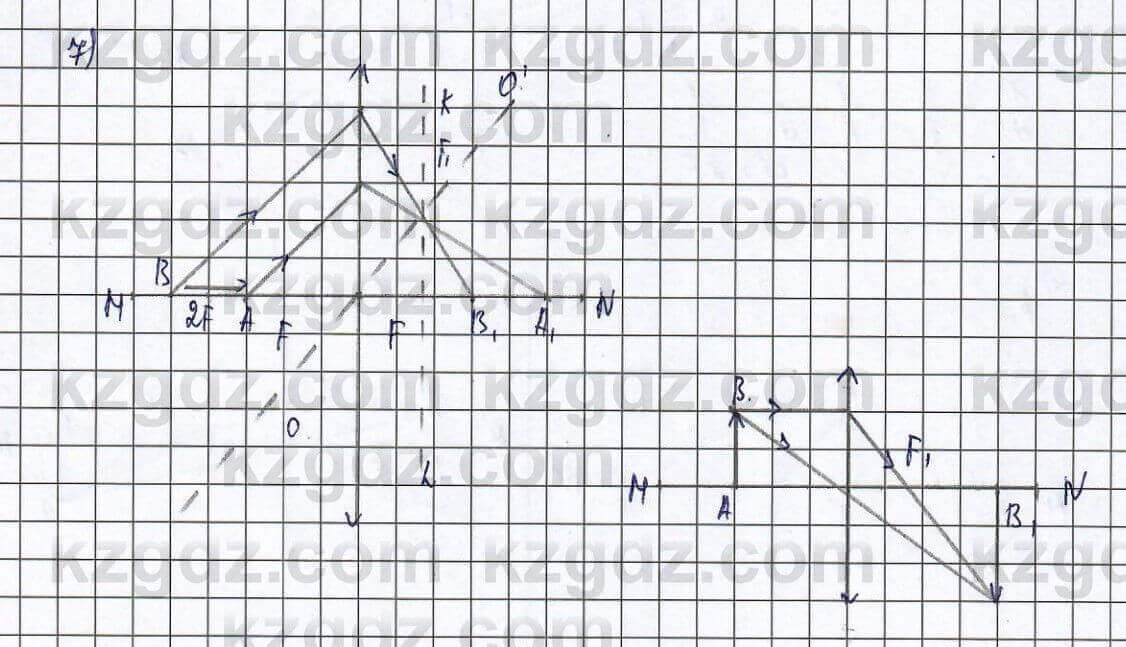 7)
O'
K
F₁
B
M 2F A F F B₁ A₁ N
O
L
B
F₁
M A B₁ N
kzgdz.com